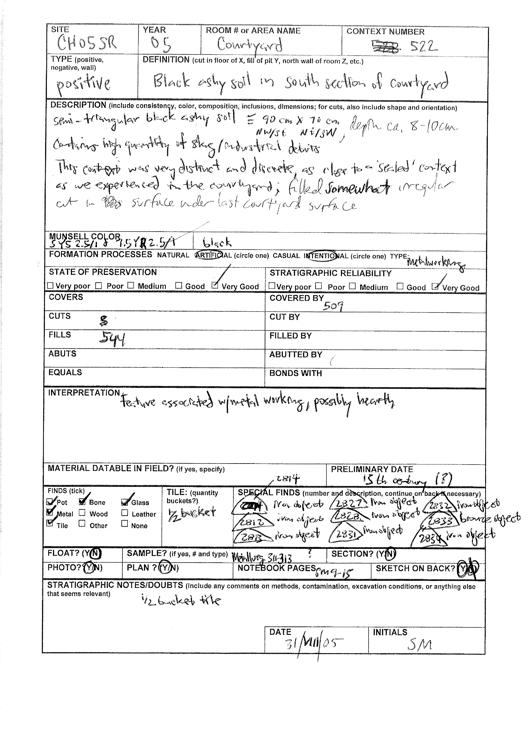 SITE YEAR ROOM # or AREA NAME CONTEXT NUMBER
CH05SR 05 Courtyard 522
TYPE (positive, negative, wall) DEFINITION (cut in floor of X, fill of pit Y, north wall of room Z, etc.)
positive Black ashy soil in south section of courtyard
DESCRIPTION (include consistency, color, composition, inclusions, dimensions; for cuts, also include shape and orientation)
semi-triangular black ashy soil 90 cm x 70 cm, depth ca. 8-10cm
Contains high quantity of slag/industrial debris
This context was very distinct and discrete, as close to a 'sealed' context
as we experienced in the courtyard; filled somewhat irregular
cut in surface under last courtyard surface
MUNSELL COLOR
5Y5 2.5/1 & 7.5YR 2.5/1 black
FORMATION PROCESSES NATURAL ARTIFICIAL (circle one) CASUAL INTENTIONAL (circle one) TYPE: metalworking
STATE OF PRESERVATION STRATIGRAPHIC RELIABILITY
Very poor Poor Medium Good Very Good Very poor Poor Medium Good Very Good
COVERS COVERED BY 509
CUTS CUT BY
FILLS 544 FILLED BY
ABUTS ABUTTED BY
EQUALS BONDS WITH
INTERPRETATION
feature associated w/metal working, possibly hearth
MATERIAL DATABLE IN FIELD? (if yes, specify) PRELIMINARY DATE
2814 13th century (?)
FINDS (tick) TILE: (quantity buckets?) SPECIAL FINDS (number and description, continue on back if necessary)
Pot Bone Glass 1/2 bucket iron object 2827 iron object 2832 iron object
Metal Wood Leather 2812 iron object 2828 iron object 2833 bronze object
Tile Other None 2813 iron object 2831 iron object 2834 iron object
FLOAT? (Y/N) SAMPLE? (if yes, # and type) 311-313 ? SECTION? (Y/N)
PHOTO? (Y/N) PLAN ? (Y/N) NOTEBOOK PAGES SM9-15 SKETCH ON BACK? (Y/N)
STRATIGRAPHIC NOTES/DOUBTS (Include any comments on methods, contamination, excavation conditions, or anything else
that seems relevant)
1/2 bucket tile
DATE INITIALS
31/VII/05 SM